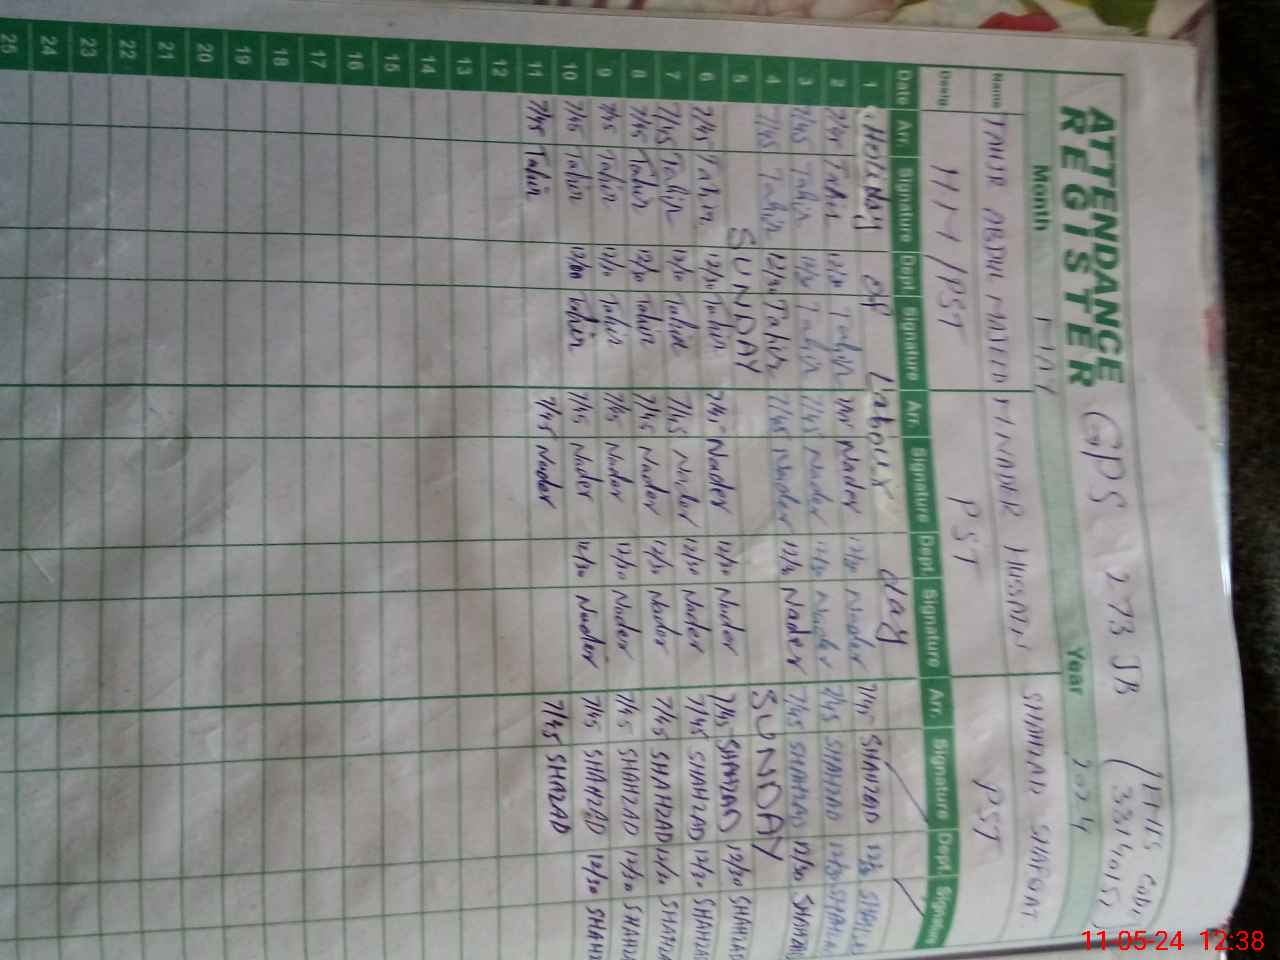 ATTENDANCE REGISTER GPS 273 JB
Month MAY Year 2024
Name TAHIR ABDUL MAJEED M NADER HUSSAIN SHAHZAD SHAFQAT
Desig H.M / PST PST PST
Date Arr. Signature Dept. Signature Arr. Signature Dept. Signature Arr. Signature Dept. Signature
1 Holiday of Labour day
2 7/45 Tahir 12/30 Tahir 7/45 Nader 12/30 Nader 7/45 SHAHZAD 12/30
3 7/45 Tahir 12/30 Tahir 7/45 Nader 12/30 Nader 7/45 SHAHZAD 12/30
4 7/45 Tahir 12/30 Tahir 7/45 Nader 12/30 Nader 7/45 SHAHZAD 12/30
5 SUNDAY SUNDAY
6 7/45 Tahir 12/30 Tahir 7/45 Nader 12/30 Nader 7/45 SHAHZAD 12/30 SHAHZAD
7 7/45 Tahir 12/30 Tahir 7/45 Nader 12/30 Nader 7/45 SHAHZAD 12/30
8 7/45 Tahir 12/30 Tahir 7/45 Nader 12/30 Nader 7/45 SHAHZAD 12/30
9 7/45 Tahir 12/30 Tahir 7/45 Nader 12/30 Nader 7/45 SHAHZAD 12/30
10 7/45 Tahir 12/00 Tahir 7/45 Nader 12/30 Nader 7/45 SHAHZAD 12/30
11 7/45 Tahir 7/45 Nader 7/45 SHAHZAD
12
13
14
15
16
17
18
19
20
21
22
23
24
25
11-05-24 12:38